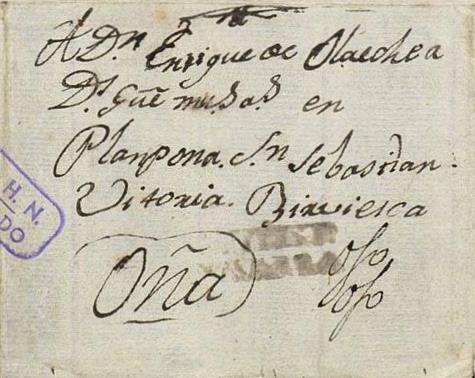 A Dn Enrique de Olaechea
Ds gūe ms as en
Planpona. Sn Sebastian.
Vitoria. Birviesca
Oña
H. N.
DO